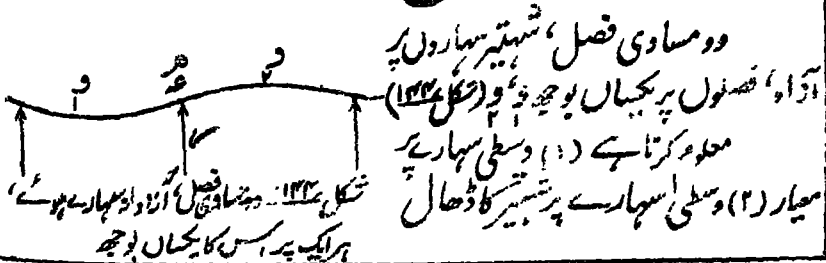 دو مساوی فصل، شہتیر سہاروں پر
آزاد، فصلوں پر یکساں بوجھ و۱، و۲ (شکل ۱۴۴)
معلوم کرتا ہے (۱) وسطی سہارے پر
معیار (۲) وسطی سہارے پر شہتیر کا ڈھال
و۱
و۲
شکل ۱۴۴ دو مساوی فصل، آزاد سہارے ہوئے،
ہر ایک پر اس کا یکساں بوجھ